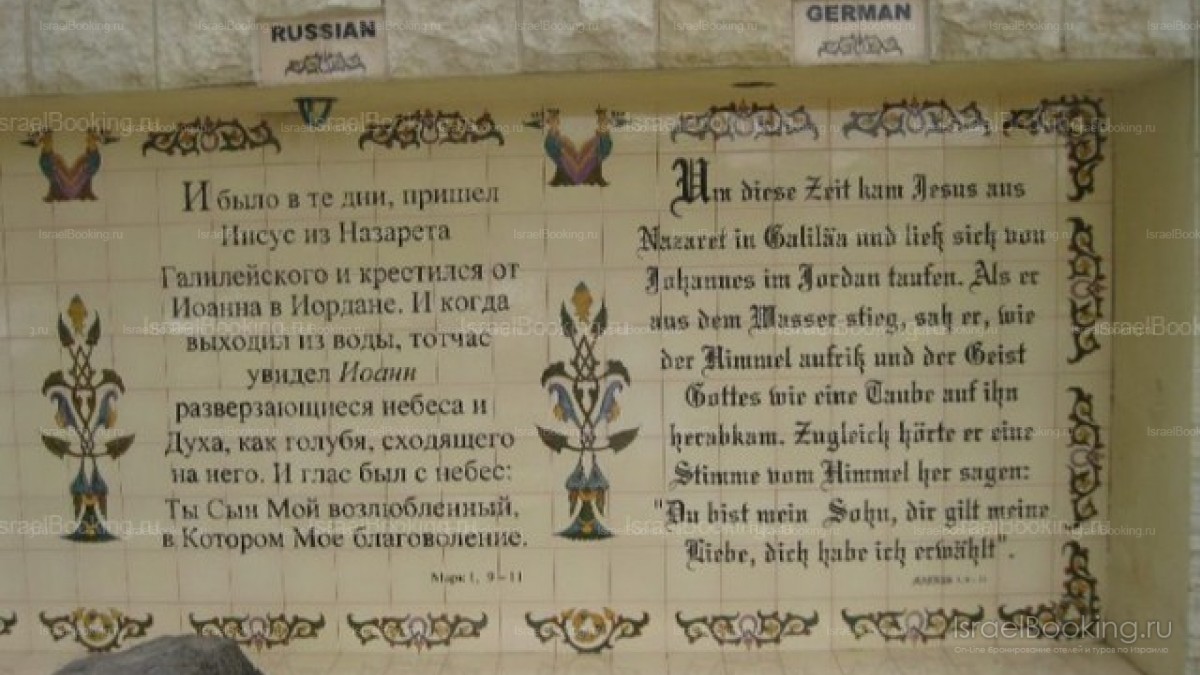 RUSSIAN
И было в те дни, пришел
Иисус из Назарета
Галилейского и крестился от
Иоанна в Иордане. И когда
выходил из воды, тотчас
увидел Иоанн
разверзающиеся небеса и
Духа, как голубя, сходящего
на него. И глас был с небес:
Ты Сын Мой возлюбленный,
в Котором Мое благоволение.
Марк 1, 9-11
GERMAN
Um diese Zeit kam Jesus aus
Nazaret in Galiläa und ließ sich von
Johannes im Jordan taufen. Als er
aus dem Wasser stieg, sah er, wie
der Himmel aufriß und der Geist
Gottes wie eine Taube auf ihn
herabkam. Zugleich hörte er eine
Stimme vom Himmel her sagen:
"Du bist mein Sohn, dir gilt meine
Liebe, dich habe ich erwählt".
IsraelBooking.ru
On-Line бронирование отелей и туров по Израилю